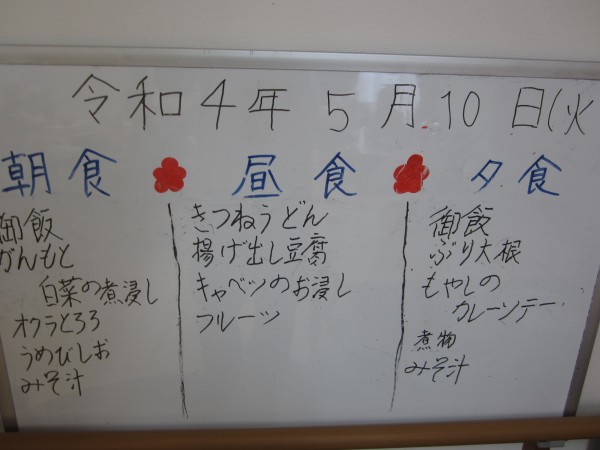 令和4年 5月10日(火
朝食 昼食 夕食
御飯
がんもと
白菜の煮浸し
オクラとろろ
うめびしお
みそ汁
きつねうどん
揚げ出し豆腐
キャベツのお浸し
フルーツ
御飯
ぶり大根
もやしの
カレーソテー
煮物
みそ汁